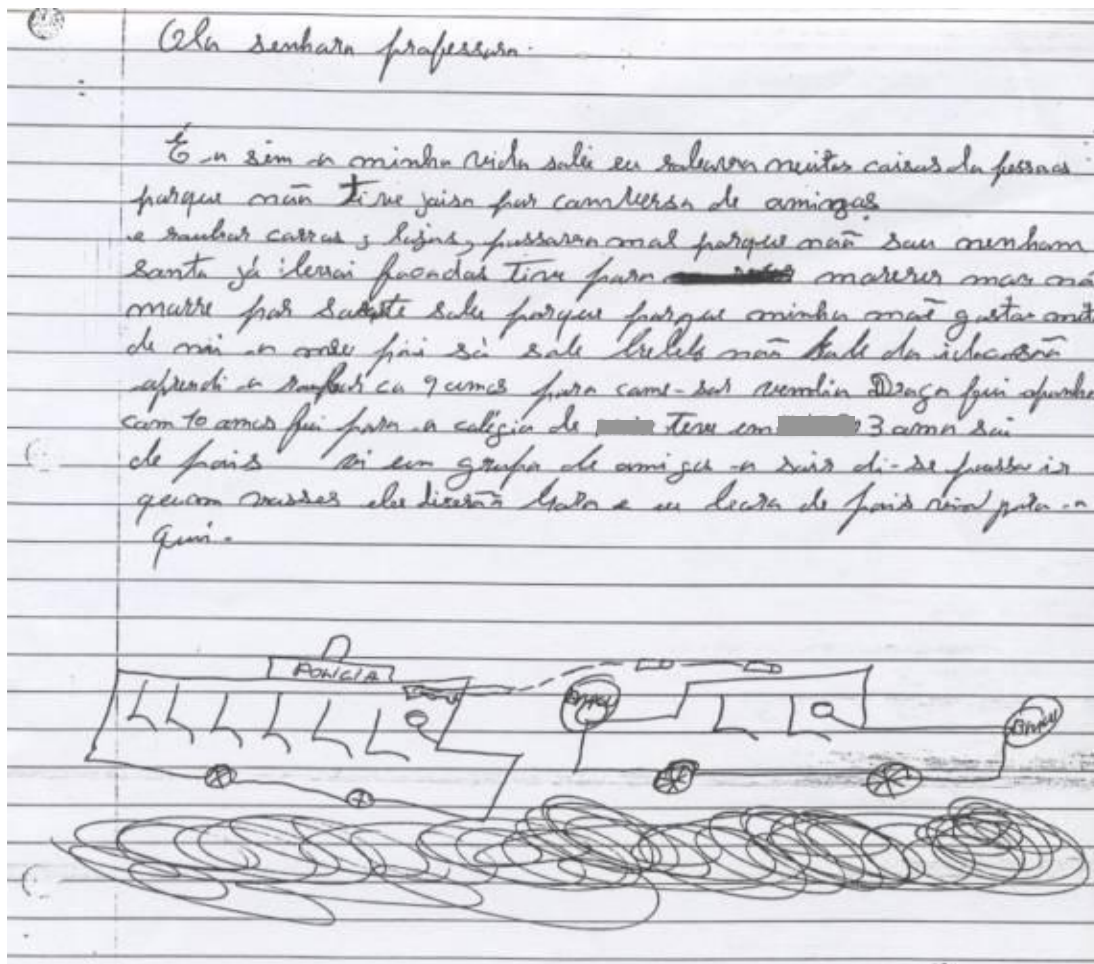 Ola senhora professora.
É a sim a minha vida sabe eu robavva muitas coisas da pessoas
porque não tive joiso por comversa de amingos
e roubar carros, lojas, passavva mal porque não sou nenham
santo já levai facadas tive para morerer mas nã
morre por sabe porque porque minha mãe gosta
de mi o meu pai só sabe não sabe da
aprendi a roubar ca 9 amos para come-sar vemdia Droga fui
com 10 amos fui para o caligio de teve em 3 amo sai
de pois vi um grupo de amigos a sair di-se possa ir
queom vosses eles diserão e eu de pois vim para a
qui.
POLICIA
BMW
BMW